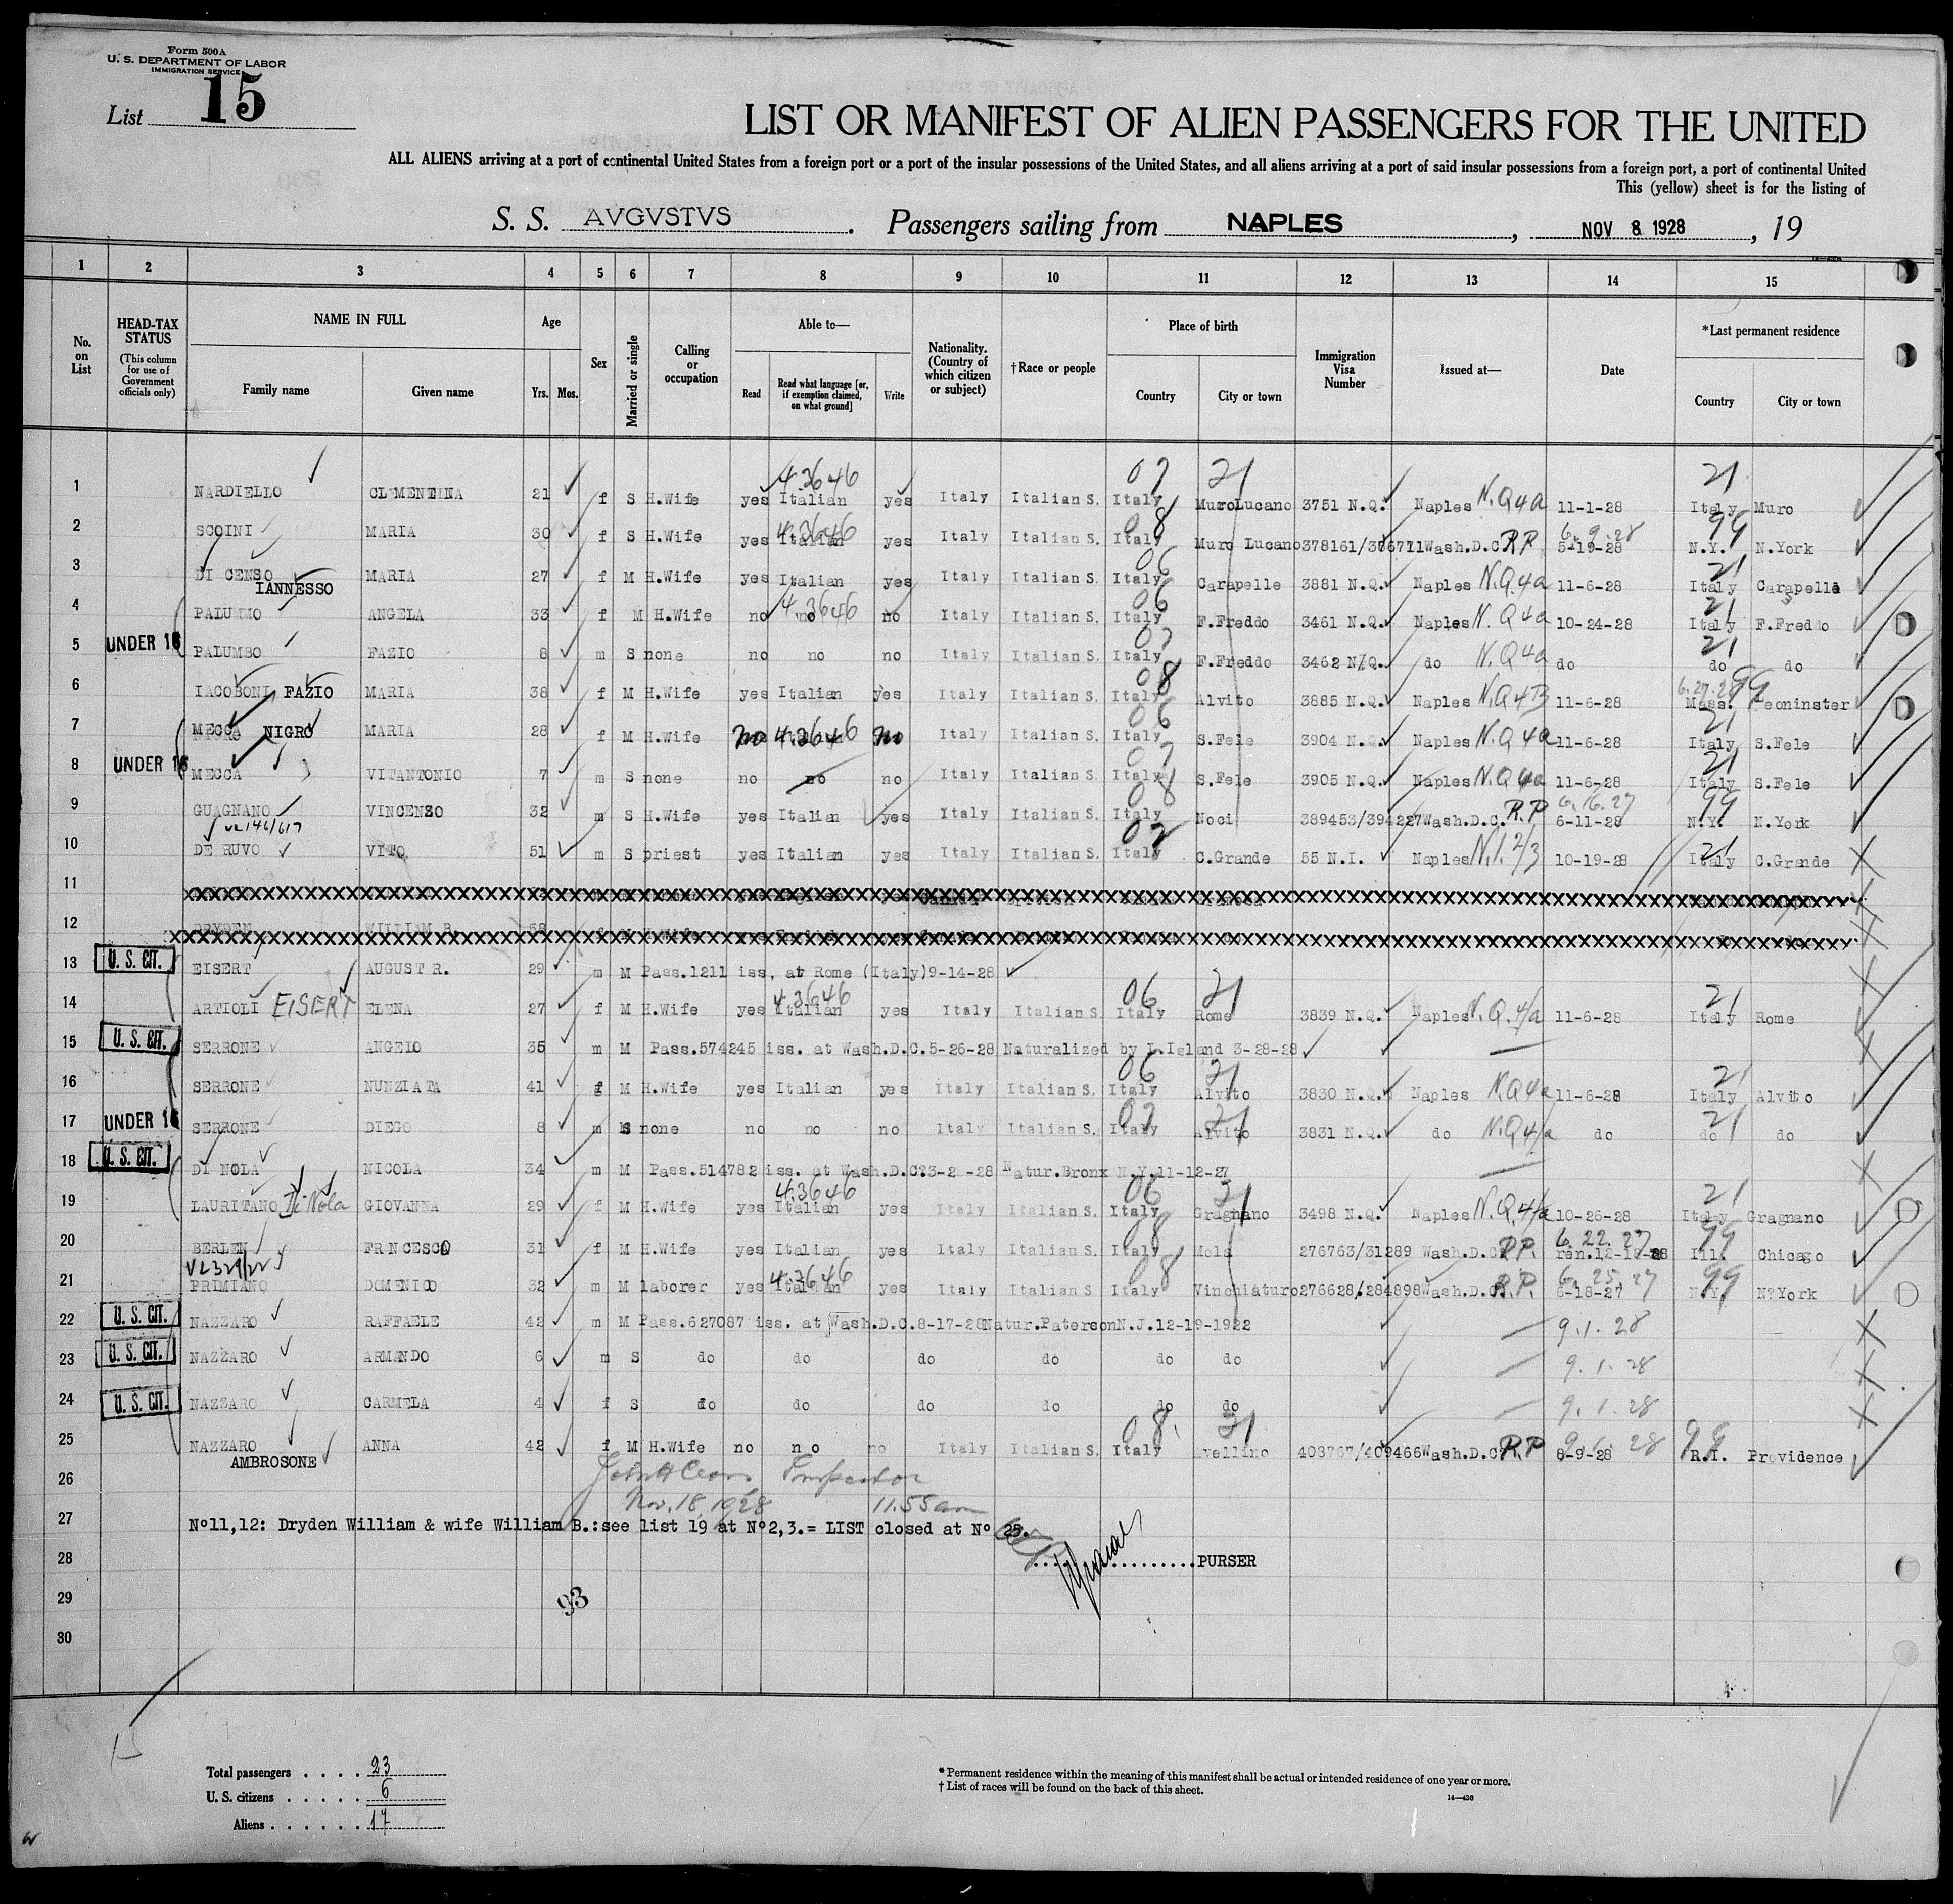 Form 500A
U. S. DEPARTMENT OF LABOR
IMMIGRATION SERVICE
List 15
LIST OR MANIFEST OF ALIEN PASSENGERS FOR THE UNITED
ALL ALIENS arriving at a port of continental United States from a foreign port or a port of the insular possessions of the United States, and all aliens arriving at a port of said insular possessions from a foreign port, a port of continental United
This (yellow) sheet is for the listing of
S. S. AVGVSTVS. Passengers sailing from NAPLES, NOV 8 1928, 19
1 2 3 4 5 6 7 8 9 10 11 12 13 14 15
No. on List
HEAD-TAX STATUS (This column for use of Government officials only)
NAME IN FULL
Family name Given name
Age
Yrs. Mos.
Sex
Married or single
Calling or occupation
Able to—
Read Read what language [or, if exemption claimed, on what ground] Write
Nationality. (Country of which citizen or subject)
†Race or people
Place of birth
Country City or town
Immigration Visa Number
Issued at—
Date
*Last permanent residence
Country City or town
43646 07 21 21
1 NARDIELLO CLEMENTINA 21 f S H.Wife yes Italian yes Italy Italian S. Italy MuroLucano 3751 N.Q. Naples N.Q4a 11-1-28 Italy Muro
43646 08 6.9.28 99
2 SCOINI MARIA 30 f S H.Wife yes Italian yes Italy Italian S. Italy Muro Lucano 378161/376711 Wash.D.C. RP 5-19-28 N.Y. N.York
06 21
3 DI CENSO IANNESSO MARIA 27 f M H.Wife yes Italian yes Italy Italian S. Italy Carapelle 3881 N.Q. Naples N.Q4a 11-6-28 Italy Carapelle
43646 06 21
4 PALUMBO ANGELA 33 f M H.Wife no no no Italy Italian S. Italy F.Freddo 3461 N.Q. Naples N.Q4a 10-24-28 Italy F.Freddo
07 21
5 UNDER 16 PALUMBO FAZIO 8 m S none no no no Italy Italian S. Italy F.Freddo 3462 N/Q. do N.Q4a do do do
08 6.27.28 99
6 IACOBONI FAZIO MARIA 38 f M H.Wife yes Italian yes Italy Italian S. Italy Alvito 3885 N.Q. Naples N.Q4B 11-6-28 Mass. Leominster
06 21
7 MECCA NIGRO MARIA 28 f M H.Wife no 43646 no Italy Italian S. Italy S.Fele 3904 N.Q. Naples N.Q4a 11-6-28 Italy S.Fele
07 21
8 UNDER 16 MECCA VITANTONIO 7 m S none no no no Italy Italian S. Italy S.Fele 3905 N.Q. Naples N.Q4a 11-6-28 Italy S.Fele
08 6.16.27 99
9 GUAGNANO VINCENZO 32 m S H.Wife yes Italian yes Italy Italian S. Italy Noci 389453/394227 Wash.D.C. R.P 6-11-28 N.Y. N.York
VL146/617
02 21
10 DE RUVO VITO 51 m S priest yes Italian yes Italy Italian S. Italy C.Grande 55 N.I. Naples N.I.2/3 10-19-28 Italy C.Grande
11
12 DRYDEN WILLIAM B. 58
13 U. S. CIT. EISERT AUGUST R. 29 m M Pass.1211 iss, at Rome (Italy)9-14-28
43646 06 21 21
14 ARTIOLI EISERT ELENA 27 f M H.Wife yes Italian yes Italy Italian S. Italy Rome 3839 N.Q. Naples N.Q.4/a 11-6-28 Italy Rome
15 U. S. CIT. SERRONE ANGELO 35 m M Pass.574245 iss. at Wash.D.C.5-26-28 Naturalized by L.Island 3-28-28
06 21 21
16 SERRONE NUNZIATA 41 f M H.Wife yes Italian yes Italy Italian S. Italy Alvito 3830 N.Q. Naples N.Q4a 11-6-28 Italy Alvito
07 21 21
17 UNDER 16 SERRONE DIEGO 8 m S none no no no Italy Italian S. Italy Alvito 3831 N.Q. do N.Q4/a do do do
18 U. S. CIT. DI NOLA NICOLA 34 m M Pass.514782 iss. at Wash.D.C. Natur.Bronx N.Y.11-12-27
43646 06 21 21
19 LAURITANO Di Nola GIOVANNA 29 f M H.Wife yes Italian yes Italy Italian S. Italy Gragnano 3498 N.Q. Naples N.Q.4/a 10-26-28 Italy Gragnano
08 6.22.27 99
20 BERLEN FRNCESCO 31 f M H.Wife yes Italian yes Italy Italian S. Italy Mola 276763/31289 Wash.D.C. R.P. ren.12-18-28 Ill. Chicago
VL329/22
43646 08 6.25.27 99
21 PRIMIANO DOMENICO 32 m M laborer yes Italian yes Italy Italian S. Italy Vinchiaturo 276628/.284898 Wash.D.C. R.P. 6-18-27 N.Y. N?York
22 U. S. CIT. NAZZARO RAFFAELE 42 m M Pass.627087 iss. at Wash.D.C.8-17-28 Natur.Paterson N.J.12-19-1922 9.1.28
23 U. S. CIT. NAZZARO ARMANDO 6 m S do do do do do do 9.1.28
24 U. S. CIT. NAZZARO CARMELA 4 f S do do do do do do 9.1.28
08 21 99
25 NAZZARO AMBROSONE ANNA 42 f M H.Wife no no no Italy Italian S. Italy Avellino 408767/409466 Wash.D.C. R.P 8-9-28 R.I. Providence
26 Inspector
Nov. 18, 1928 11.55 am
27 Nº11,12: Dryden William & wife William B.:see list 19 at Nº2,3.= LIST closed at Nº 25.
28 PURSER
29 93
30
15
Total passengers . . . . 23
U. S. citizens . . . . . 6
Aliens . . . . . . 17
* Permanent residence within the meaning of this manifest shall be actual or intended residence of one year or more.
† List of races will be found on the back of this sheet.
14—436